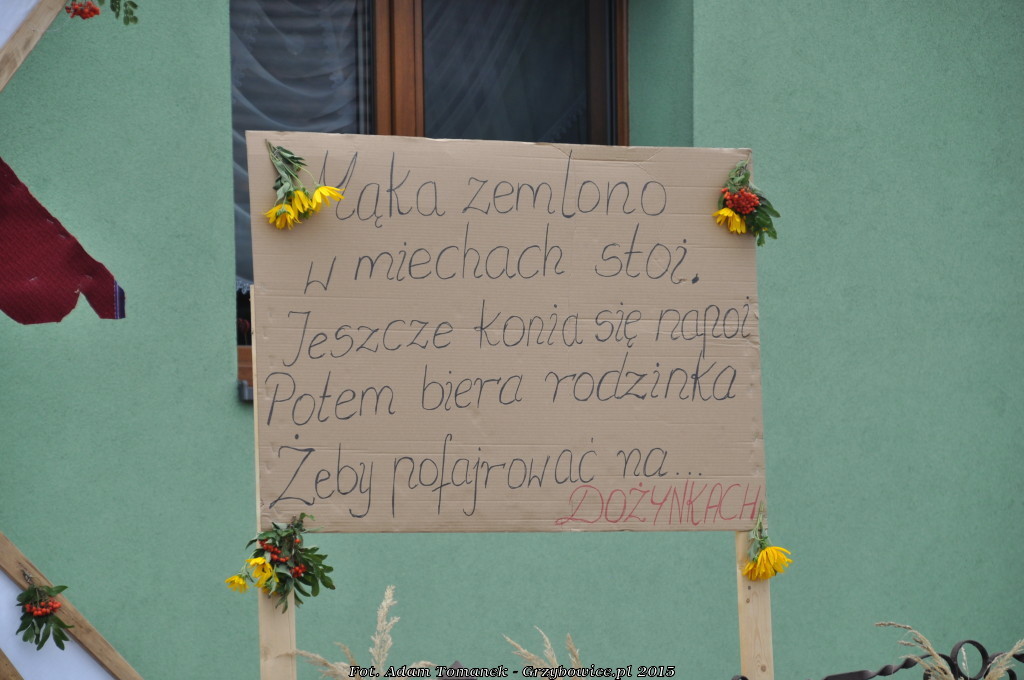 Mąka zemlono
w miechach stoi.
Jeszcze konia się napoi
Potem biera rodzinka
Żeby pofajrować na...
DOŻYNKACH
Fot. Adam Tomanek - Grzybowice.pl 2015